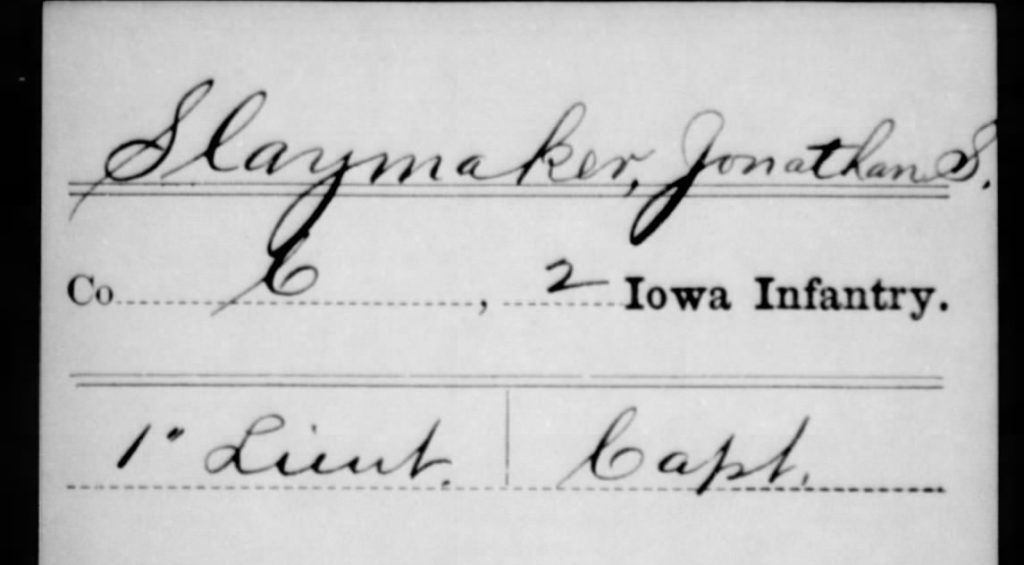 Slaymaker, Jonathan S.
Co C, 2 Iowa Infantry.
1" Lieut. Capt.